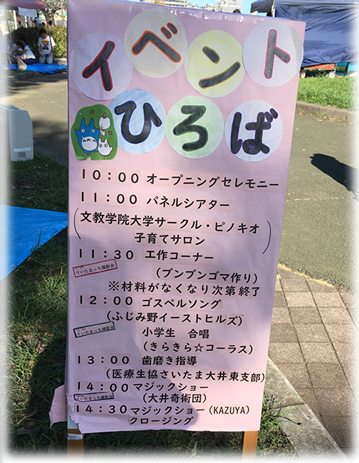 イベント
ひろば
10:00 オープニングセレモニー
11:00 パネルシアター
(文教学院大学サークル・ピノキオ
子育てサロン)
11:30 工作コーナー
(ブンブンゴマ作り)
※材料がなくなり次第終了
12:00 ゴスペルソング
(ふじみ野イーストヒルズ)
小学生 合唱
(きらきら☆コーラス)
13:00 歯磨き指導
(医療生協さいたま大井東支部)
14:00 マジックショー
(大井奇術団)
14:30 マジックショー(KAZUYA)
クロージング